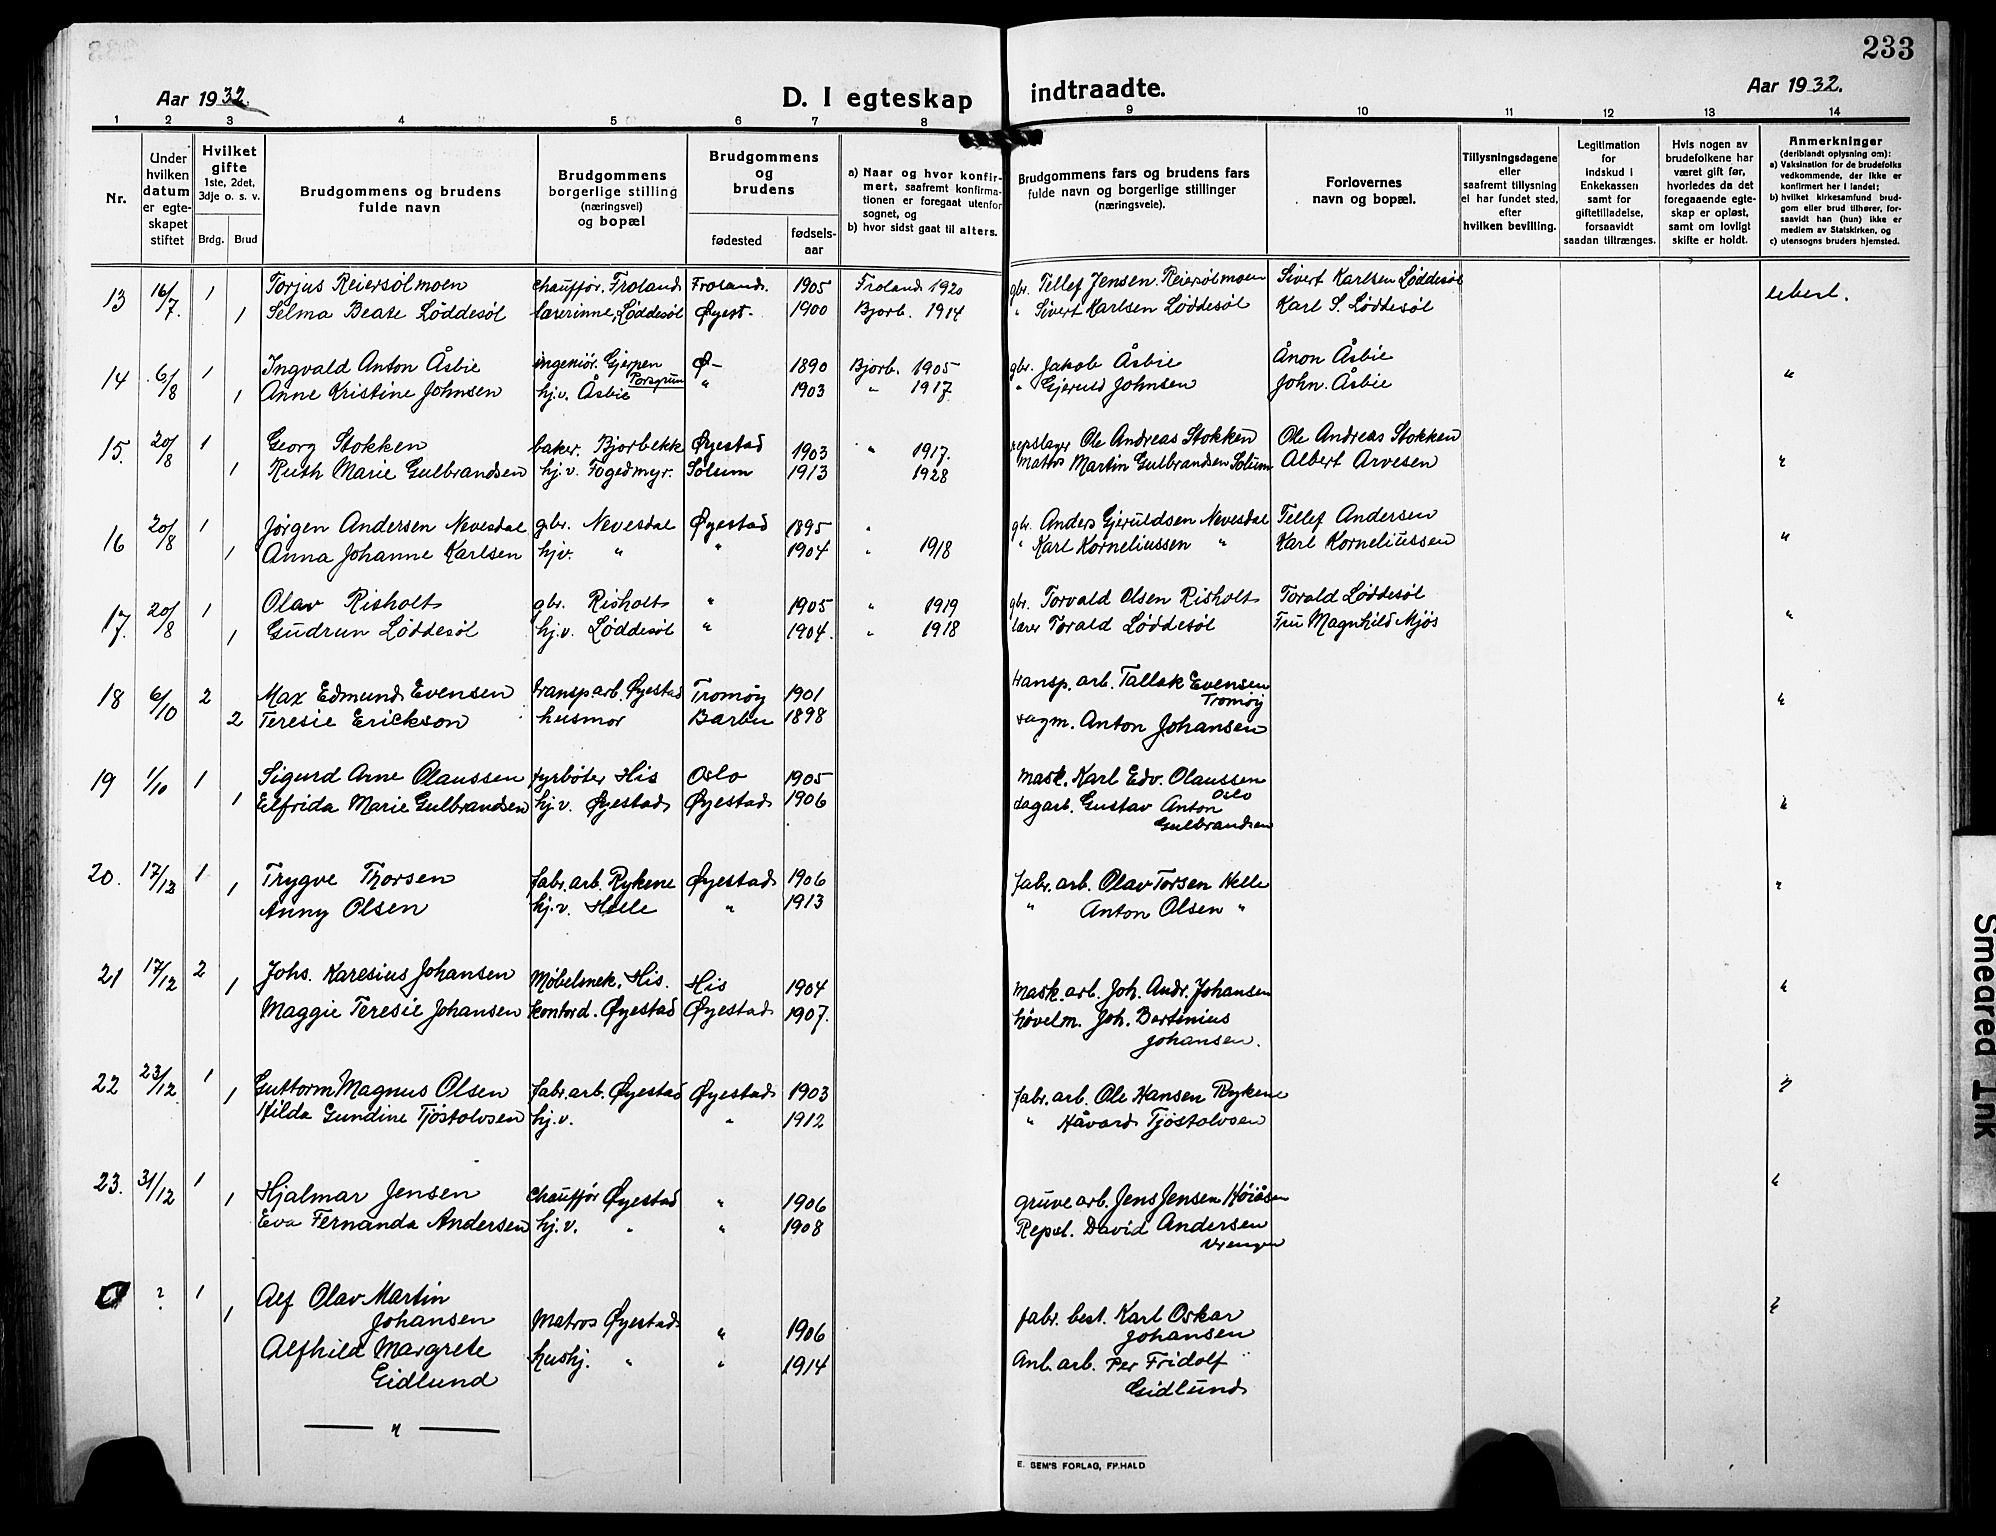 233
Aar 1932.
D. I egteskap indtraadte.
Aar 1932.
1 2 3 4 5 6 7 8 9 10 11 12 13 14
Nr.
Under hvilken datum er egteskapet stiftet
Hvilket gifte 1ste, 2det, 3dje o. s. v.
Brdg. Brud
Brudgommens og brudens fulde navn
Brudgommens borgerlige stilling (næringsvei) og bopæl
Brudgommens og brudens
fødested
fødselsaar
a) Naar og hvor konfirmert, saafremt konfirmationen er foregaat utenfor sognet, og
b) hvor sidst gaat til alters.
Brudgommens fars og brudens fars fulde navn og borgerlige stillinger (næringsveie).
Forlovernes navn og bopæl.
Tillysningsdagene eller saafremt tillysning ei har fundet sted, efter hvilken bevilling.
Legitimation for indskud i Enkekassen samt for giftetilladelse, forsaavidt saadan tiltrænges.
Hvis nogen av brudefolkene har været gift før, hvorledes da det foregaaende egteskap er opløst, samt om lovligt skifte er holdt.
Anmerkninger (deriblandt oplysning om):
a) Vaksination for de brudefolks vedkommende, der ikke er konfirmert her i landet;
b) hvilket kirkesamfund brudgom eller brud tilhører, forsaavidt han (hun) ikke er medlem av Statskirken, og
c) utensogns bruders hjemsted.
13 16/7. 1 Torjus Reiersølmoen chauffør, Froland Froland. 1905 Froland 1920 gbr. Tellef Jensen Reiersølmoen Sivert Karlsen Løddesøl
1 Selma Beate Løddesøl lærerinne, Løddesøl Øyest- 1900 Bjorb. 1914 " Sivert Karlsen Løddesøl Karl S. Løddesøl
14 6/8 1 Ingvald Anton Åsbie ingeniør. Gjerpen Porsgrunn Ø- 1890 Bjorb. 1905 gbr. Jakob Åsbie Ånon Åsbie "
1 Anne Kristine Johnsen hj.v. Åsbie " 1903 " 1917 " Gjeruld Johnsen John. Åsbie
15. 20/8 1 Georg Stokken baker. Bjorbekk Øyestad 1903 " 1917. repslager Ole Andreas Stokken Ole Andreas Stokken
1 Ruth Marie Gulbrandsen hj.v. Fogedmyr. Solum 1913 1928 matros Martin Gulbrandsen Solum Albert Arvesen "
16 20/8 1 Jørgen Andersen Nevesdal gbr. Nevesdal Øyestad 1895 " gbr. Anders Gjeruldsen Nevesdal Tellef Andersen
1 Anna Johanne Karlsen hjv. " " 1904 " 1918 " Karl Korneliussen " Karl Korneliussen "
17. 20/8 1 Olav Risholt gbr. Risholt " 1905 " 1919 gbr. Torvald Olsen Risholt Torald Løddesøl
1 Gudrun Løddesøl hj.v. Løddesøl " 1904. " 1918 lærer Torald Løddesøl Fru Magnhild Mjøs "
18 6/10 2 Max Edmund Evensen transp.arb. Øyestad Tromøy 1901 transp. arb. Tallak Evensen Tromøy "
2 Teresie Erickson husmor Barbu 1898 Anton Johansen
19 1/10 1 Sigurd Arne Olaussen fyrbøter His Oslo 1905 mask. Karl Edv. Olaussen Oslo
1 Elfrida Marie Gulbrandsen hj.v. Øyestad Øyestad 1906 dagarb. Gustav Anton Gulbrandsen "
20. 17/12 1 Trygve Thorsen fabr. arb. Rykene Øyestad 1906 fabr. arb. Olav Torsen Helle "
1 Anny Olsen hj.v. Helle " 1913 " Anton Olsen "
21 17/12 2 Johs. Karesius Johansen Møbelsnek. His. His 1904 mask. arb. Joh. Andr. Johansen "
1 Maggie Teresie Johansen kontord. Øyestad Øyestad 1907. høvelm. Joh. Bertinius Johansen.
22 23/12 1 Guttorm Magnus Olsen fabr. arb. Øyestad Øyestad 1903 fabr. arb. Ole Hansen Rykene "
1 Hilda Gundine Tjøstolvsen hj.v. " 1912 " Håvard Tjøstolvsen
23. 31/12 1 Hjalmar Jensen chauffør Øyestad " 1906 gruve arb. Jens Jensen Høiåsen "
1 Eva Fernanda Andersen hj.v. " " 1908 Repsl. David Andersen Vrengen
? 1 Alf Olav Martin Johansen Matros Øyestad " 1906 fabr. best. Karl Oskar Johansen "
1 Alfhild Margrete Gidlund hushj. " " 1914 Anl. arb. Per Fridolf Gidlund
— " —
E. SEM'S FORLAG, FR.HALD
Smeared Ink